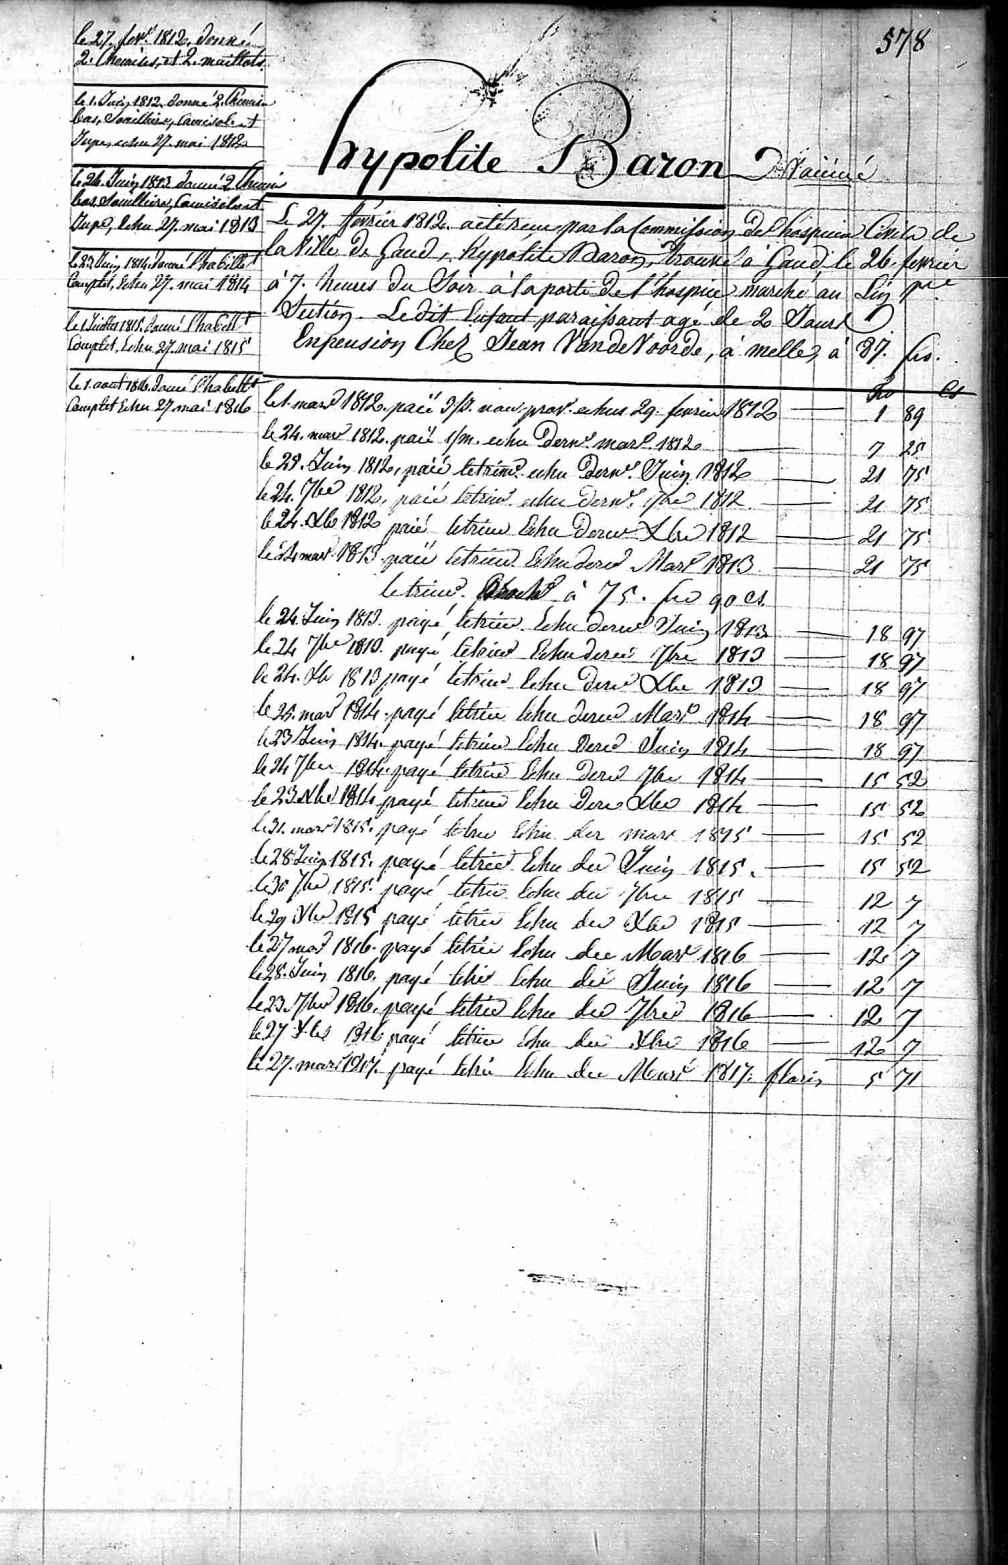 578
le 27. fevr. 1812. donné
2. Chemises, et 2. maillots.
le 1. Juin 1812. donné 2. Chemis
bas, Souilliers, Camisole et
Jupe, echu 27. mai 1812
le 26. Juin 1813 donné 2 Chemis
bas Souilliers, Camisole et
Jupe, Echu 27. mai 1813
le 23 Juin 1814. donné l'habillt
Complet, Echu 27. mai 1814
le 1 Juillet 1815. donné l'habillt
Complet, Echu 27. mai 1815
le 1. aout 1816. donné l'habillt
Complet Echu 27. mai 1816
hypolite Baron
Le 27. fevrier 1812. a été reçu par la Commission de l'hospice Civils de
la Ville de Gand, hypolite Baron, trouvé à Gand le 26 fevrier
à 7. heures du Soir à la porte de l'hospice marché au Lin pre
Section. Le dit Enfant paraissant agé de 2 Jours
En pension Chez Jean VandeVoorde, à melle, à 87. fcs.
le 1. mars 1812. paié 3/3. nour. prov. echus 29. fevrier 1812 1 89
le 24. mars 1812. paié 1/m. echu dernr. mars 1812 7 25
le 23. Juin 1812, paié le trimr. echu dernr. Juin 1812 21 75
le 24. 7bre 1812, paié le trimr. echu dernr. 7bre 1812 21 75
le 24. Xbre 1812 paié le trimr Echu dernr Xbre 1812 21 75
le 24 mars 1813 paié le trimr. Echu dernr Mars 1813 21 75
le trimr. à 75. fcs 90 cs
le 24 Juin 1813. payé le trimr Echu dernr Juin 1813 18 97
le 24 7bre 1813. payé le trimr Echu dernr 7bre 1813 18 97
le 24. Xbr 1813 payé le trimr Echu dernr Xbre 1813 18 97
le 25. mars 1814. payé le trimr Echu dernr Mars 1814 18 97
le 23 Juin 1814. payé le trimr Echu dernr Juin 1814 18 97
le 24 7bre 1814. payé le trimr Echu dernr 7bre 1814 15 52
le 23 Xbre 1814 payé le trimr Echu dernr Xbre 1814 15 52
le 31. mars 1815. payé le trim Echu der mars 1815 15 52
le 28 Juin 1815. payé le trim Echu der Juin 1815. 15 52
le 30 7bre 1815. payé le trim Echu der 7bre 1815 12 7
le 29 Xbre 1815 payé le trim Echu der Xbre 1815 12 7
le 27 mars 1816. payé le trim Echu der Mars 1816 12 7
le 28. Juin 1816. payé le trim Echu der Juin 1816 12 7
le 23. 7bre 1816. payé le trim Echu der 7bre 1816 12 7
le 27 Xbre 1816 payé le trim Echu der Xbre 1816 12 7
le 27. mars 1817. payé le trim Echu der Mars 1817. florins 5 71